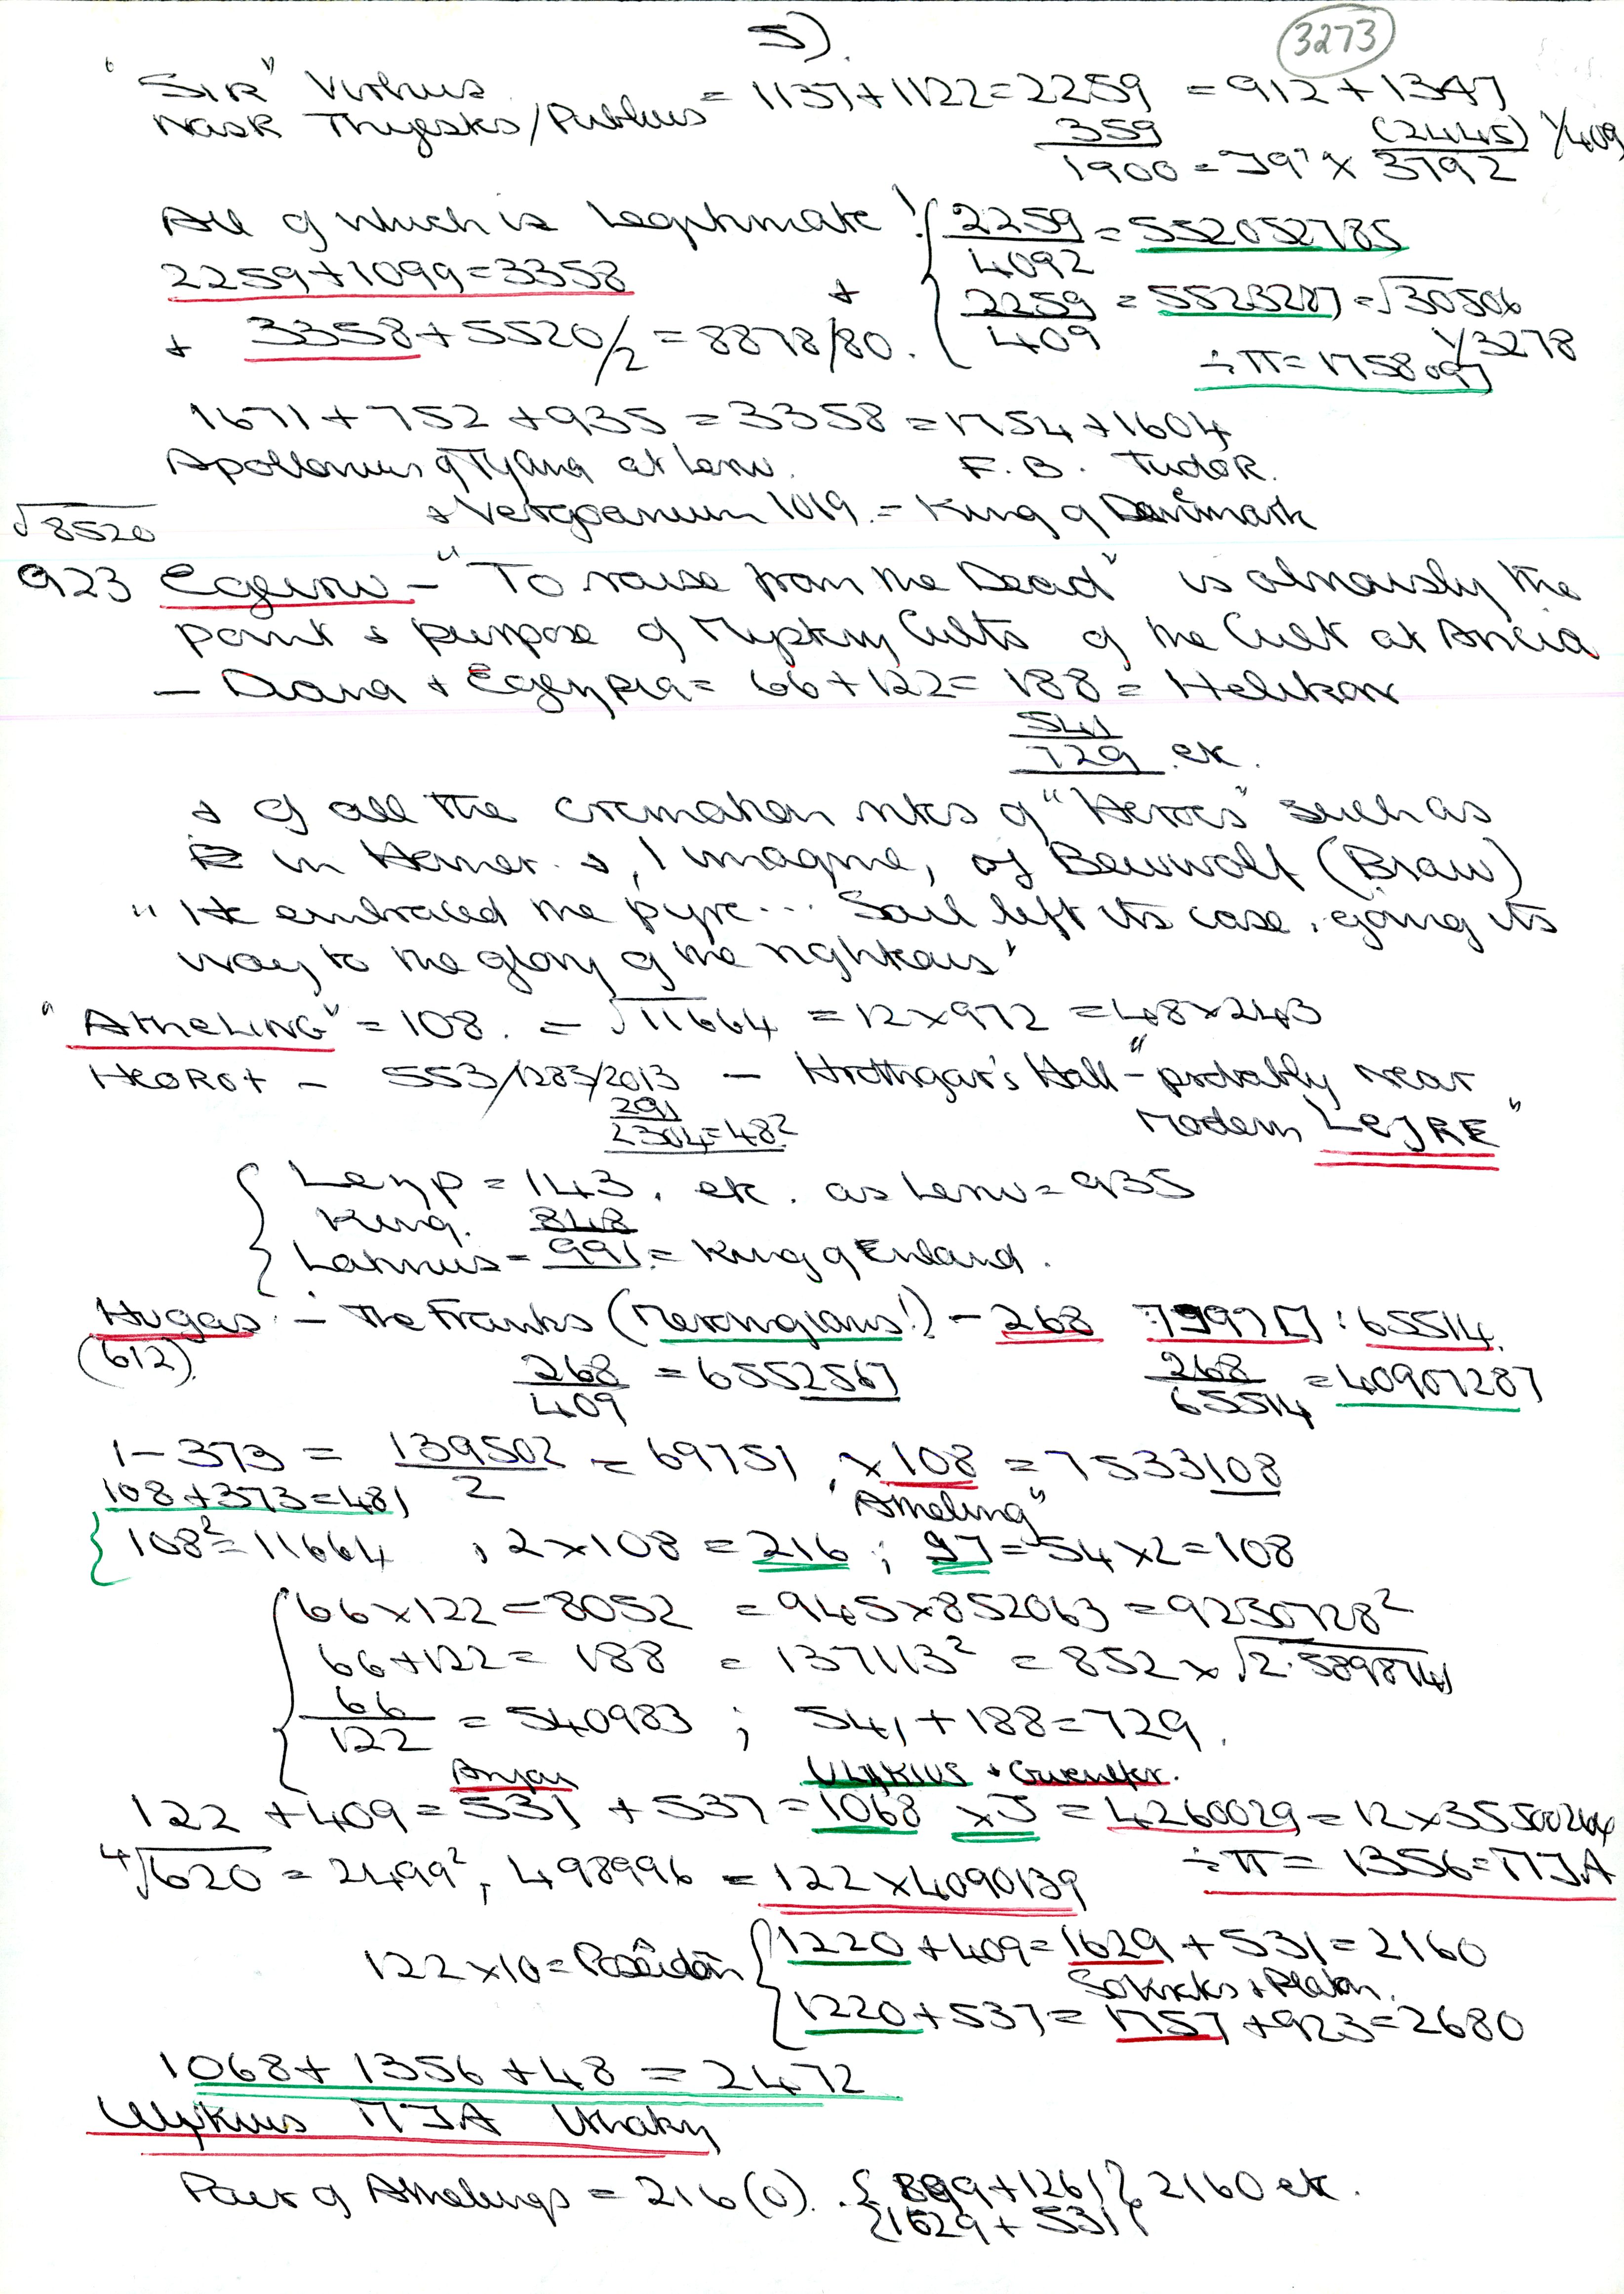 5).
3273
"SIR" Virbius
Nask Thyestes/Publius = 1137+1122=2259 = 912+1347
359
1900 = J9" x (2445)/3792 1/409
All of which is Legitimate! { 2259/4092 = 552052785
2259+1099=3358
+ { 2259/409 = 5523227 = √30506
+ 3358+5520/2 = 8878/80. 1/3278
÷π=1758097
1671+752+935=3358=1754+1604
Apollonius of Tyana at F.B. Tudor.
+ 1019. = King of Denmark
√8520
923 Egeiro - "To raise from the Dead" is obviously the
point & purpose of Mystery Cults of the Cult at Aricia
- Diana + = 66+122= 188 = Helikon
541
729 etc.
+ of all the cremation rites of "Heroes" such as
in Homer. +, I imagine, of Beuwolf (Braw)
"He embraced the pyre... Soul left its case, going its
way to the glory of the righteous"
"ATHELING" = 108. = √11664 = 12x972 = 48x243
HEOROT - 553/1283/2013 - Hrothgar's Hall - "probably near
291
2304=48²
Modern LEJRE"
{ = 143. etc. as = 935
King. 848
Latinus = 991 = King of Enland.
Hugas - The Franks (Merovingians!) - 268 : 65514.
(612). 268/409 = 6552567 268/65514 = 40907287
1-373 = 139502/2 = 69751, x108 = 7533108
108+373=481 "Atheling"
{ 108²=11664 , 2x108 = 216 ; 97=54x2=108
{ 66x122=8052 = 945x852063 = 9230728²
66+122= 188 = 137113² = 852x√2.589874
66/122 = 540983 ; 541+188=729.
+ Gwenifer.
122+409=531+537=1068 xJ = 4260029=12x35500244
⁴√620 = 2499², 498996 = 122x4090139 ÷π= 1356=ΠJA
122x10=Poseidon { 1220+409=1629+531=2160
Sokrates + Platon.
{ 1220+537=1757+923=2680
1068+1356+48=2472
ΠJA
Pair of Athelings = 216(0). { 899+1261 } 2160 etc.
{ 1629+531 }